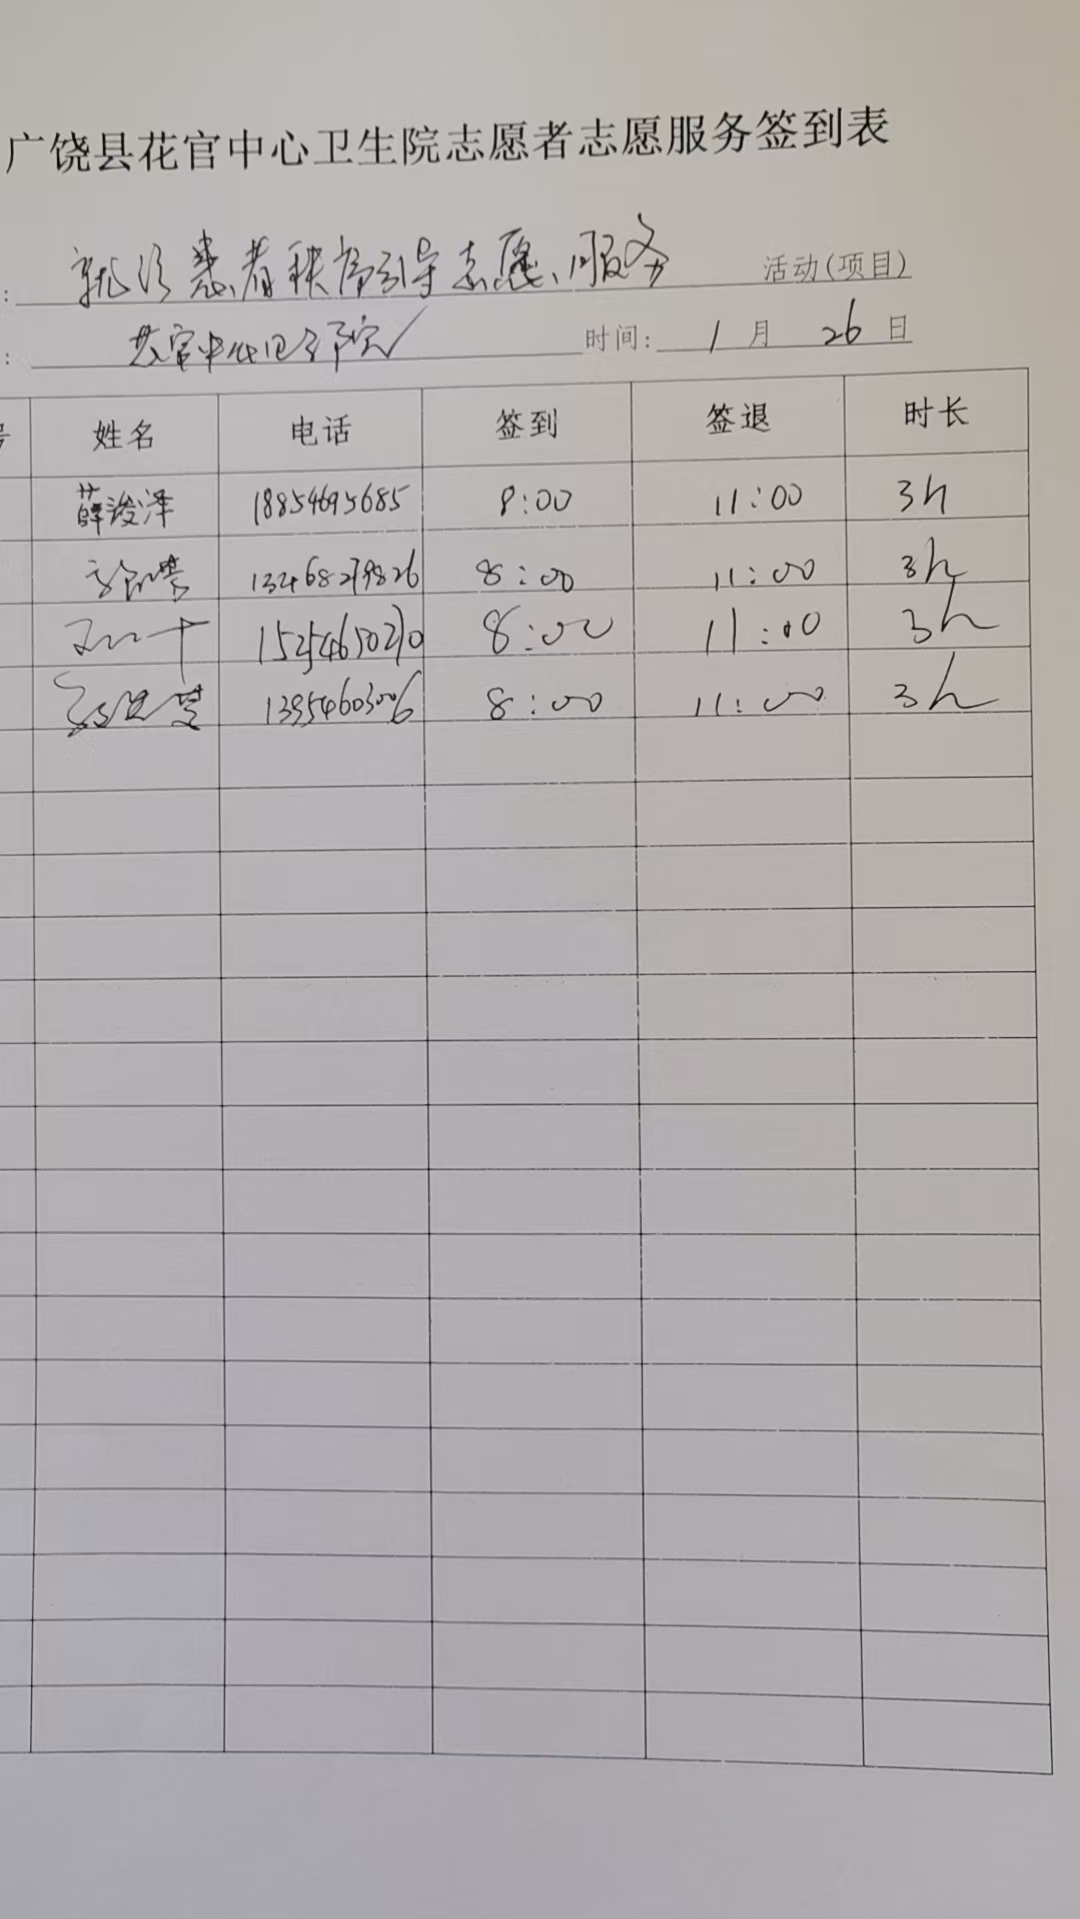 广饶县花官中心卫生院志愿者志愿服务签到表
: 就诊患者秩序引导志愿服务 活动(项目)
: 花官中心卫生院 时间: 1 月 26 日
号 姓名 电话 签到 签退 时长
薛浚泽 18854695685 8:00 11:00 3h
13468279826 8:00 11:00 3h
8:00 11:00 3h
13954603006 8:00 11:00 3h